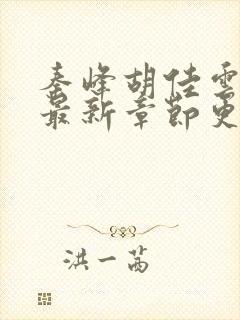 秦峰胡佳雲
最新章節更
洪一茜